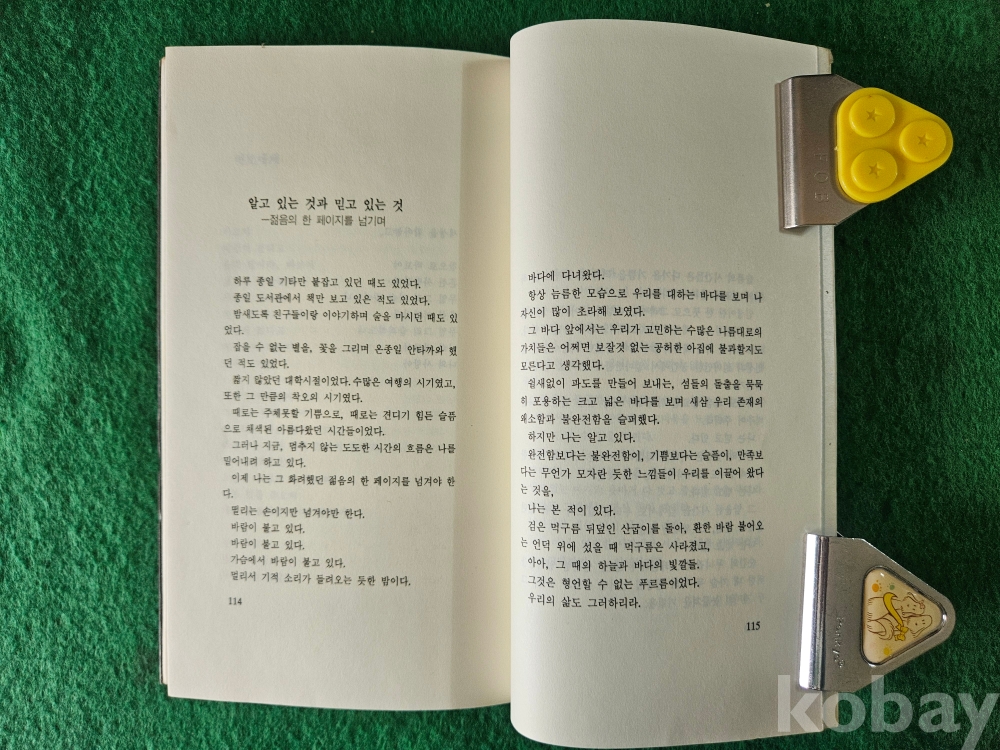 알고 있는 것과 믿고 있는 것
─젊음의 한 페이지를 넘기며
하루 종일 기타만 붙잡고 있던 때도 있었다.
종일 도서관에서 책만 보고 있은 적도 있었다.
밤새도록 친구들이랑 이야기하며 술을 마시던 때도 있
었다.
잡을 수 없는 별을, 꽃을 그리며 온종일 안타까와 했
던 적도 있었다.
짧지 않았던 대학시절이었다. 수많은 여행의 시기였고,
또한 그 만큼의 착오의 시기였다.
때로는 주체못할 기쁨으로, 때로는 견디기 힘든 슬픔
으로 채색된 아름다왔던 시간들이었다.
그러나 지금, 멈추지 않는 도도한 시간의 흐름은 나를
밀어내려 하고 있다.
이제 나는 그 화려했던 젊음의 한 페이지를 넘겨야 한
다.
떨리는 손이지만 넘겨야만 한다.
바람이 불고 있다.
바람이 불고 있다.
가슴에서 바람이 불고 있다.
멀리서 기적 소리가 들려오는 듯한 밤이다.
114
바다에 다녀왔다.
항상 늠름한 모습으로 우리를 대하는 바다를 보며 나
자신이 많이 초라해 보였다.
그 바다 앞에서는 우리가 고민하는 수많은 나름대로의
가치들은 어쩌면 보잘것 없는 공허한 아집에 불과할지도
모른다고 생각했다.
쉴새없이 파도를 만들어 보내는, 섬들의 돌출을 묵묵
히 포용하는 크고 넓은 바다를 보며 새삼 우리 존재의
왜소함과 불완전함을 슬퍼했다.
하지만 나는 알고 있다.
완전함보다는 불완전함이, 기쁨보다는 슬픔이, 만족보
다는 무언가 모자란 듯한 느낌들이 우리를 이끌어 왔다
는 것을,
나는 본 적이 있다.
검은 먹구름 뒤덮인 산굽이를 돌아, 환한 바람 불어오
는 언덕 위에 섰을 때 먹구름은 사라졌고,
아아, 그 때의 하늘과 바다의 빛깔들,
그것은 형언할 수 없는 푸르름이었다.
우리의 삶도 그러하리라.
115
kobay